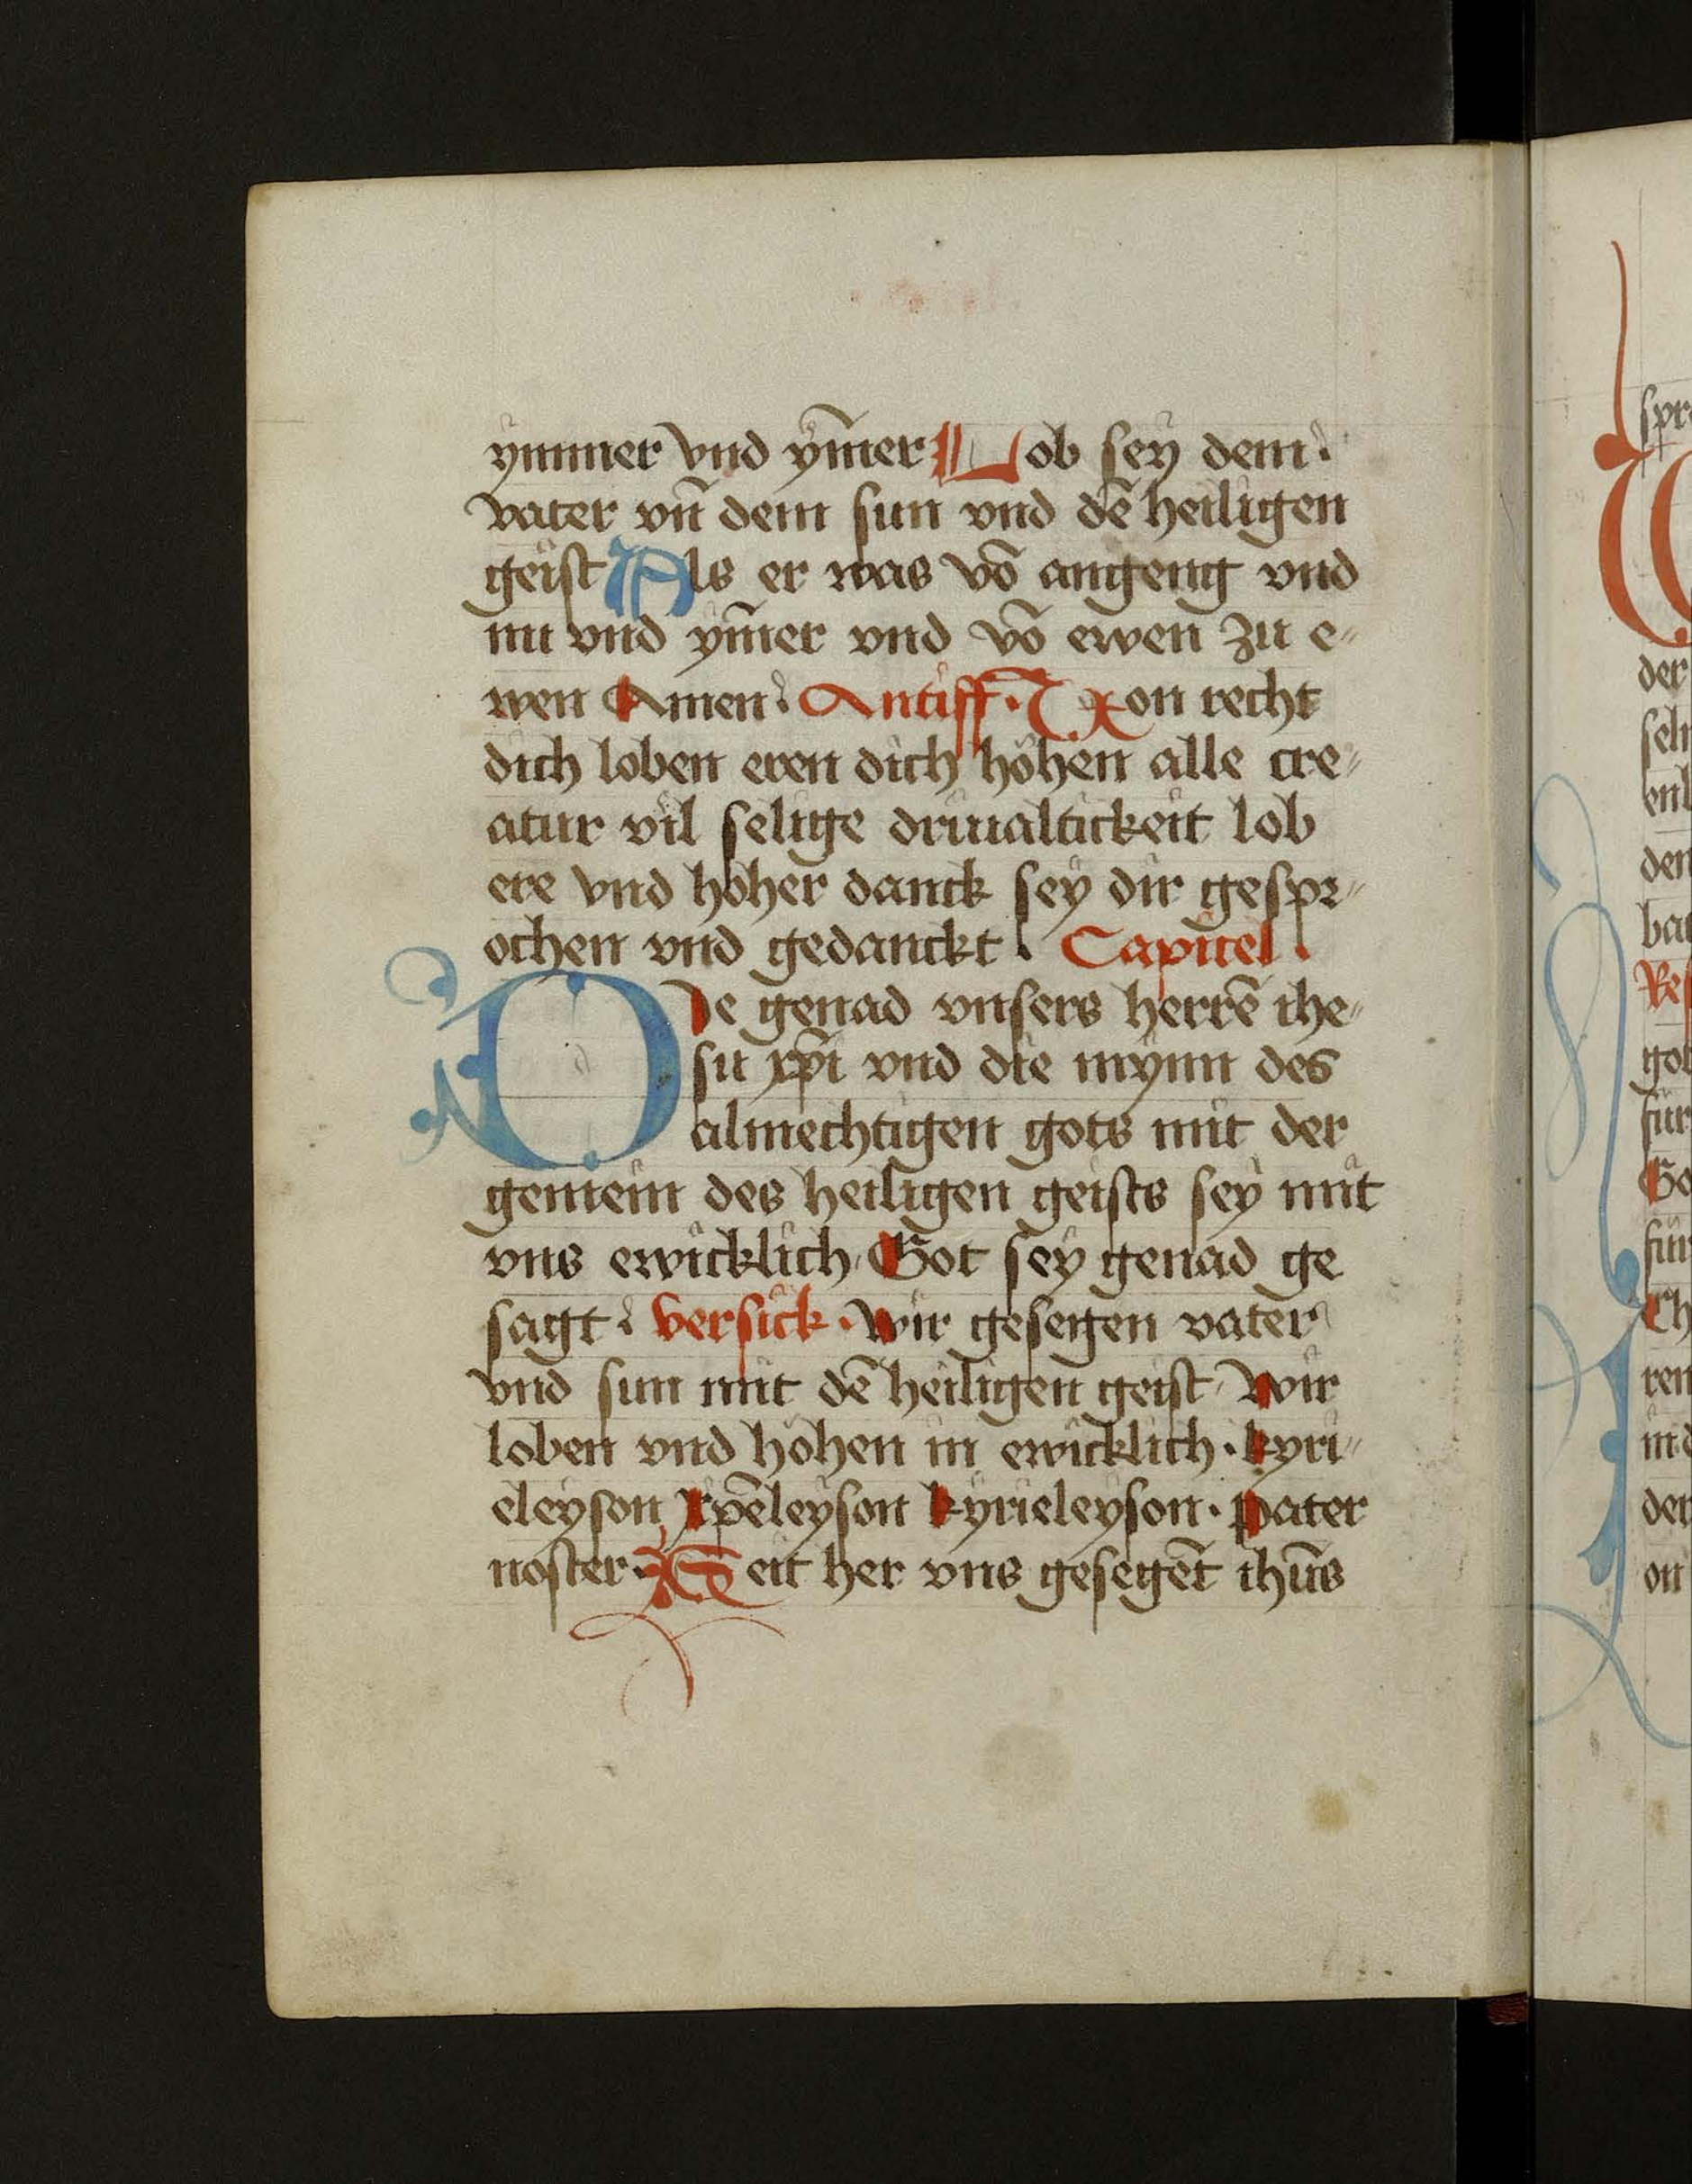 ymmer vnd ym̄er Lob sey dem
vater vn̄ dem sun vnd dē heiligen
geist Als er was vō angeng vnd
nu vnd ym̄er vnd vō ewen zu e⸗
wen Amen. Antiff. Von recht
dich loben eren dich höhen alle cre⸗
atur vil selige driualtickeit lob
ere vnd hoher danck sey dir gespr⸗
ochen vnd gedanckt. Capitel.
De genad vnsers herrē ihe⸗
su xp̄i vnd die mynn des
almechtigen gots mit der
gemein des heiligen geists sey mit
vns ewicklich. Got sey genad ge
sagt. versick. wir gesegen vater
vnd sun mit dē heiligen geist. Wir
loben vnd höhen in ewicklich. kyri⸗
eleyson xp̄eleyson kyrieleyson. pater
noster. Seit her vns gesegēt ihūs
spre
der
seln
enl
den
bat
Res
got
für
Go
für
Ch
ren
in d
der
on